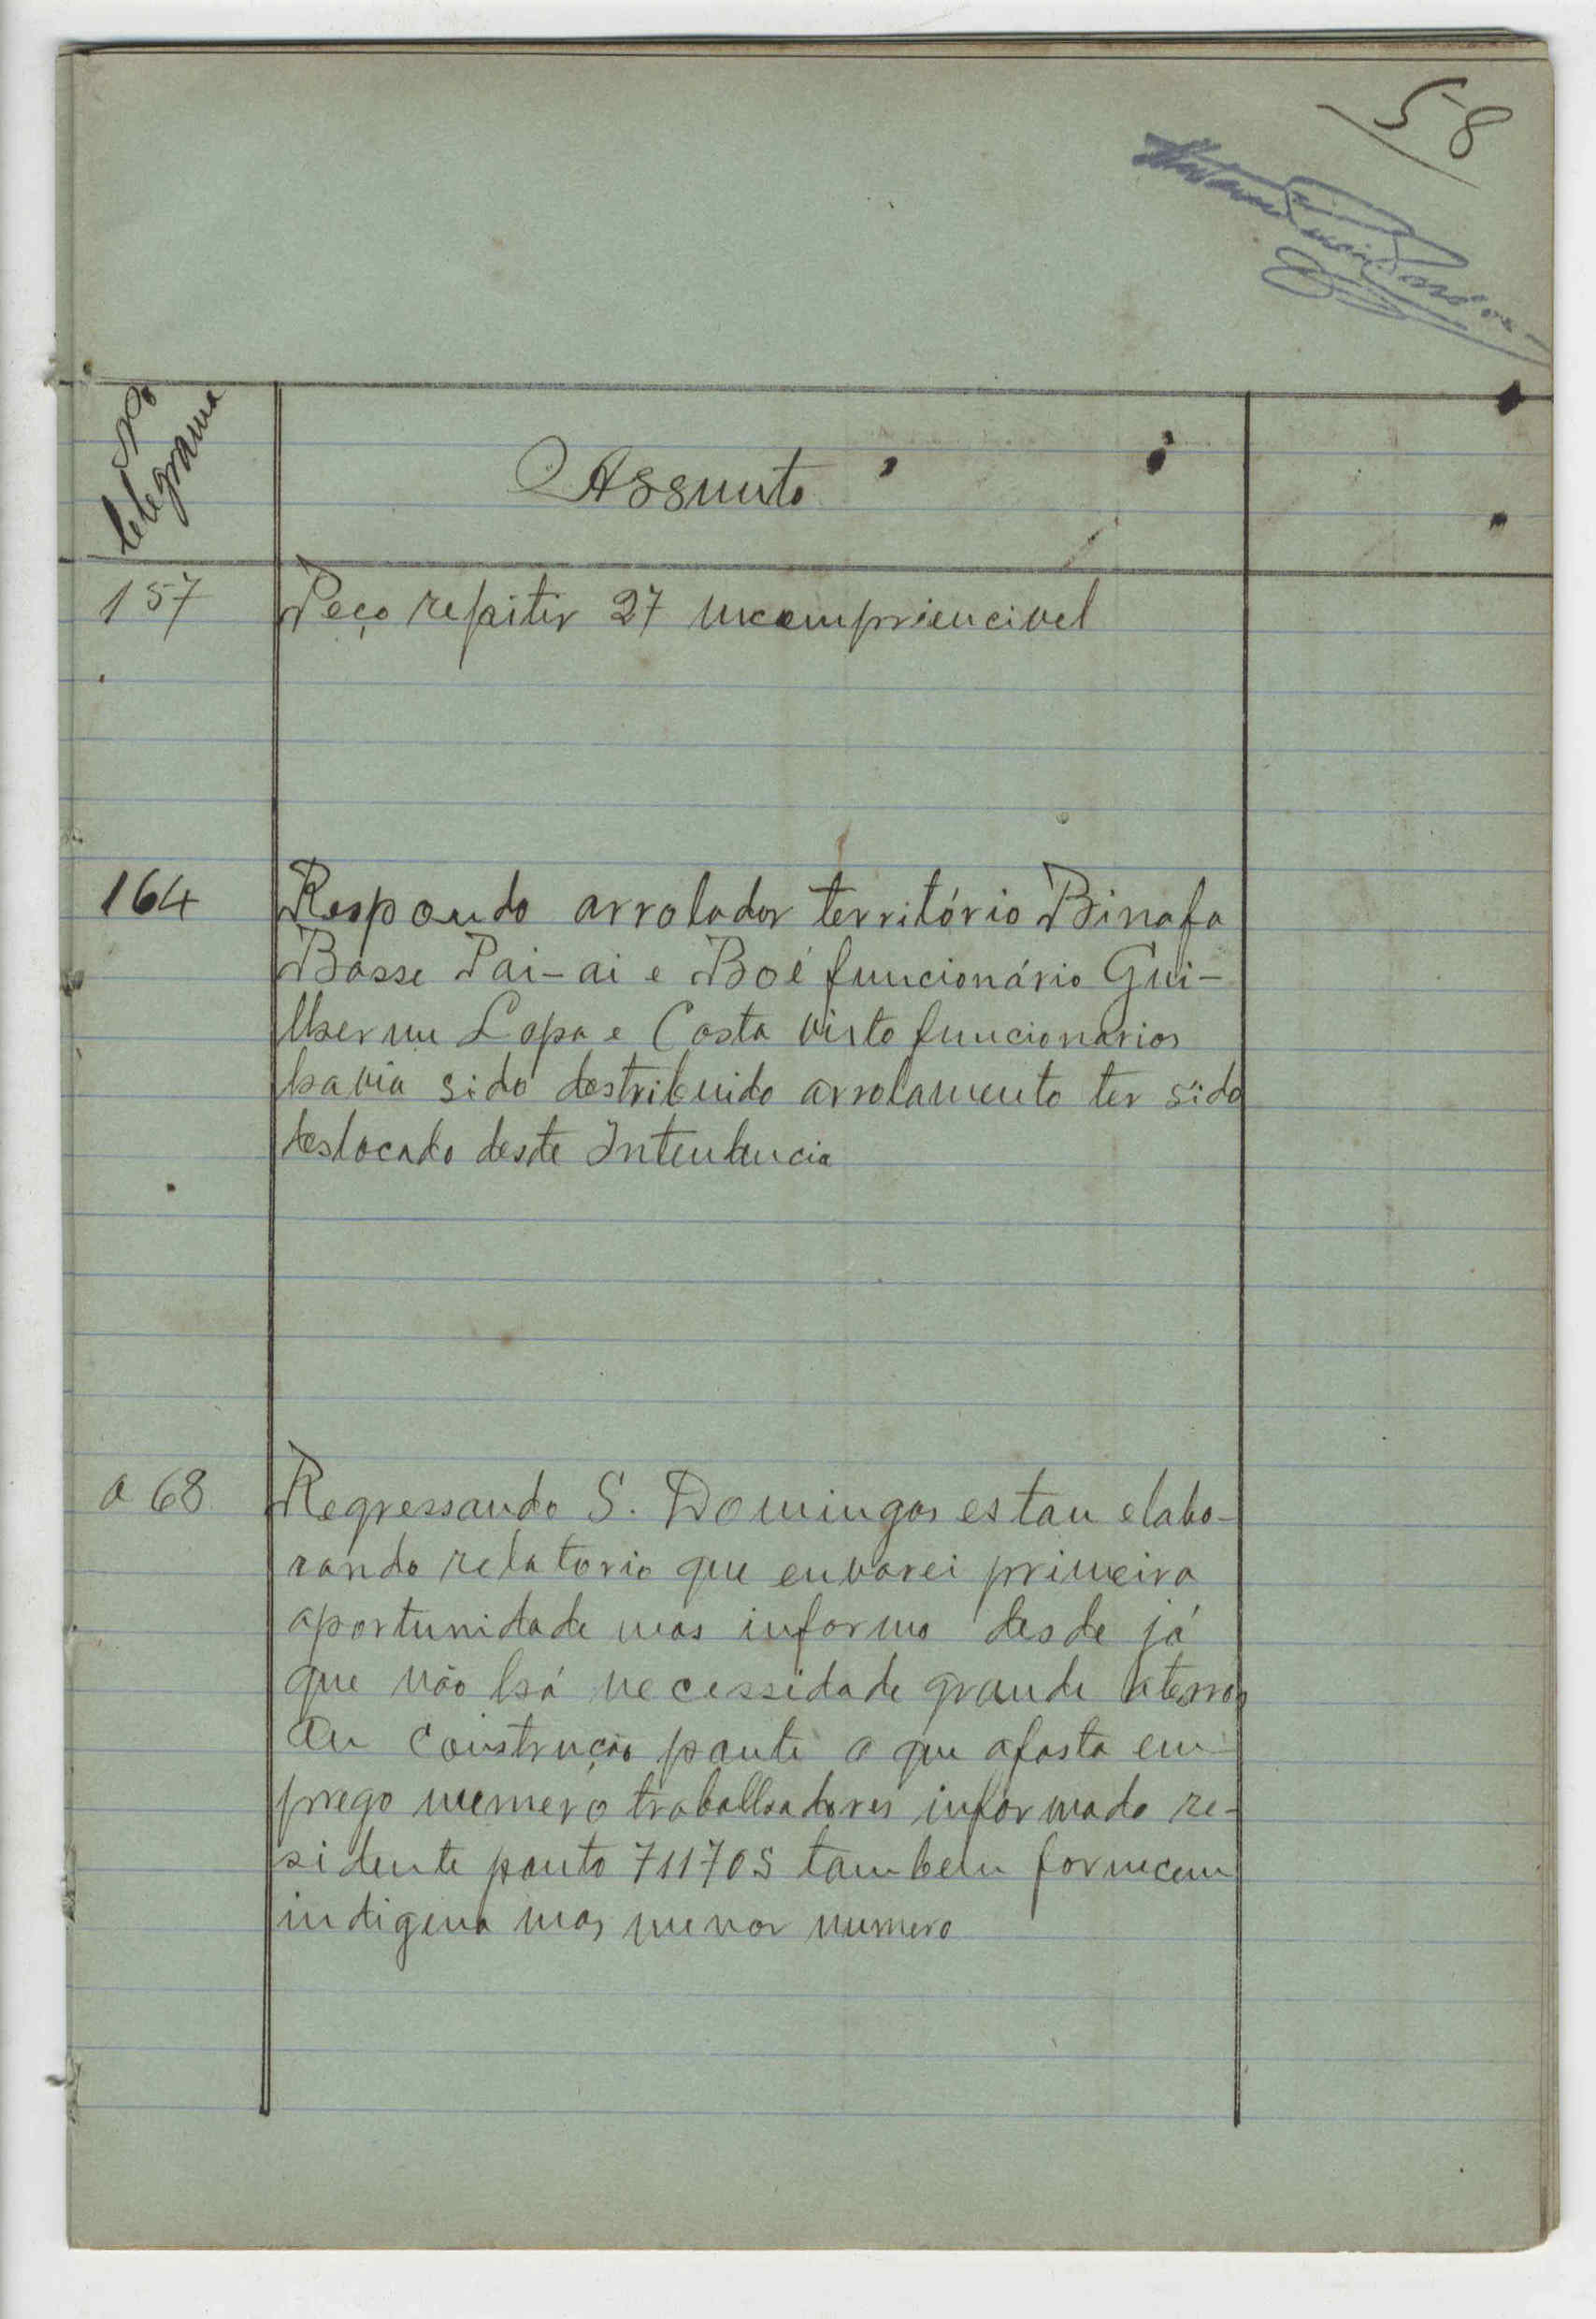 58
Nº
telegrama
Assunto
157
Peço repitir 27 incompriencivel
164
Respondo arrolador território Binafa
Basse Pai-ai e Boé funcionário Gui-
lherme Lopa e Costa visto funcionarios
havia sido destribuido arrolamento ter sido
deslocado deste Intendencia
a 68
Regressando S. Domingos estou elabo-
rando relatorio que envarei primeira
aportunidade mas informo desde já
que não há necessidade grande aterros
ou construção ponte o que afasta em-
prego numero trabalhadores informado re-
sidente ponto 71170S tambem fornecem
indigena mas menor numero